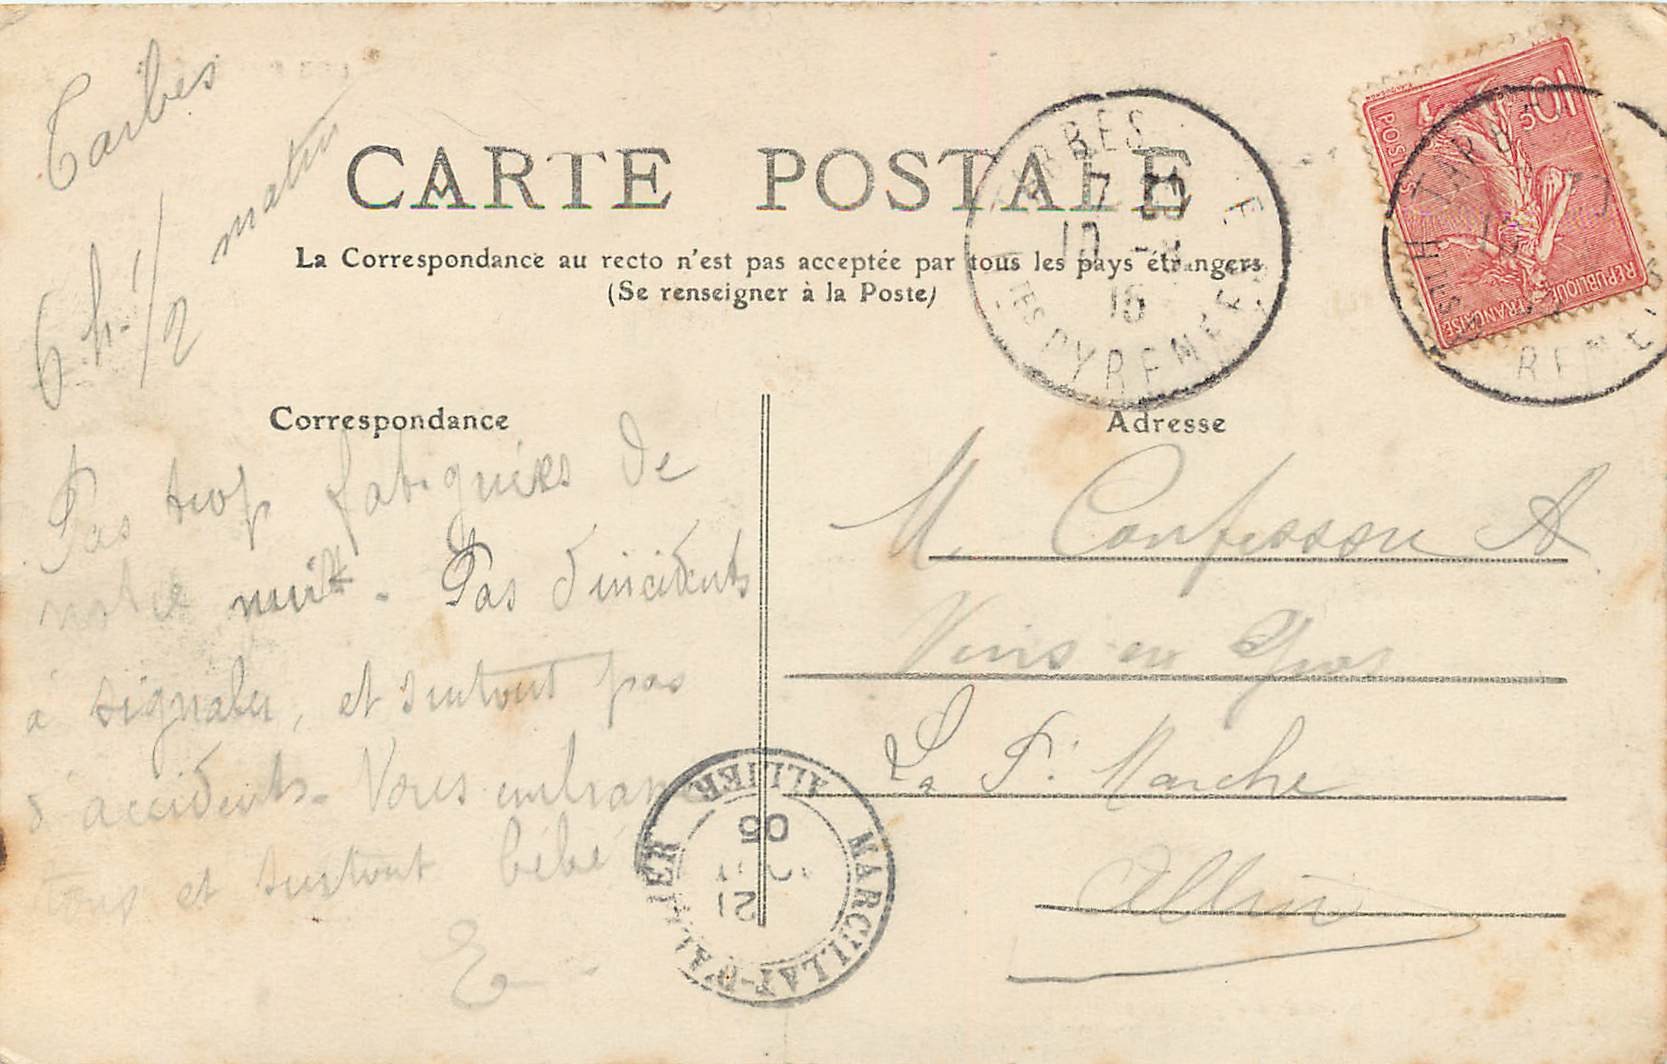 Tarbes
6 h. 1/2 matin
CARTE POSTALE
La Correspondance au recto n'est pas acceptée par tous les pays étrangers
(Se renseigner à la Poste)
Correspondance
Adresse
Pas trop fatiguées de
notre nuit. Pas d'incidents
à signaler, et surtout pas
d'accidents. Vous embrasse
tous et surtout bébé
E
M. Confesson A
Vins en Gros
La Pte Marche
Allier
TARBES
10
15
HTES PYRENEES
MARCILLAT-D'ALLIER
ALLIER
21
05
10c
POSTES
REPUBLIQUE FRANÇAISE